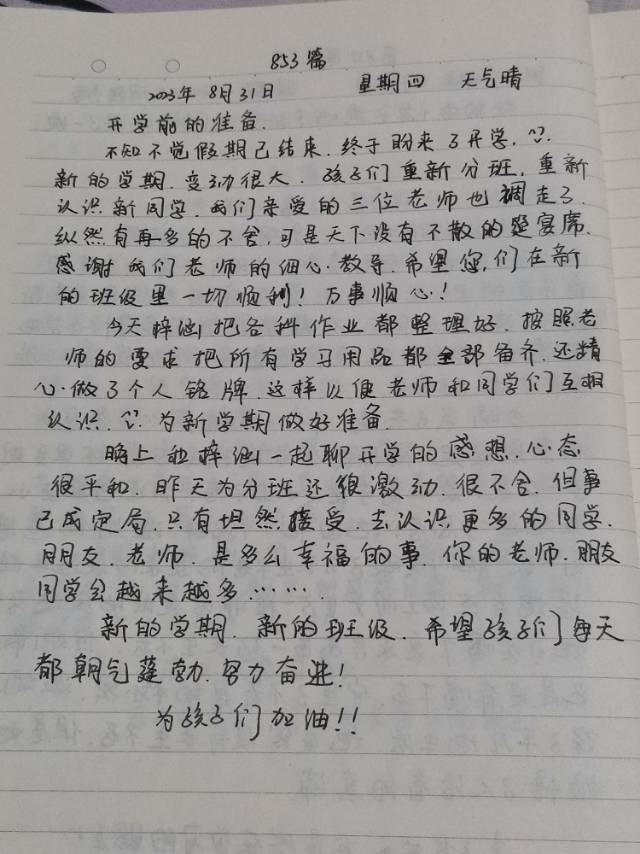 853篇
2023年 8月31日 星期四 天气晴
开学前的准备.
不知不觉假期已结束.终于盼来了开学.
新的学期.变动很大.孩子们重新分班,重新
认识新同学.我们亲爱的三位老师也调走了.
纵然有再多的不舍,可是天下没有不散的筵宴席.
感谢我们老师的细心.教导.希望您,们在新
的班级里一切顺利!万事顺心!
今天梓涵把各科作业都整理好.按照老
师的要求把所有学习用品都全部备齐.还精
心做了个人铭牌.这样以便老师和同学们互相
认识.为新学期做好准备.
晚上和梓涵一起聊开学的感想.心态
很平和.昨天为分班还很激动.很不舍.但事
已成定局.只有坦然接受.去认识更多的同学.
朋友.老师.是多么幸福的事.你的老师.朋友
同学会越来越多……
新的学期.新的班级.希望孩子们每天
都朝气蓬勃.努力奋进!
为孩子们加油!!